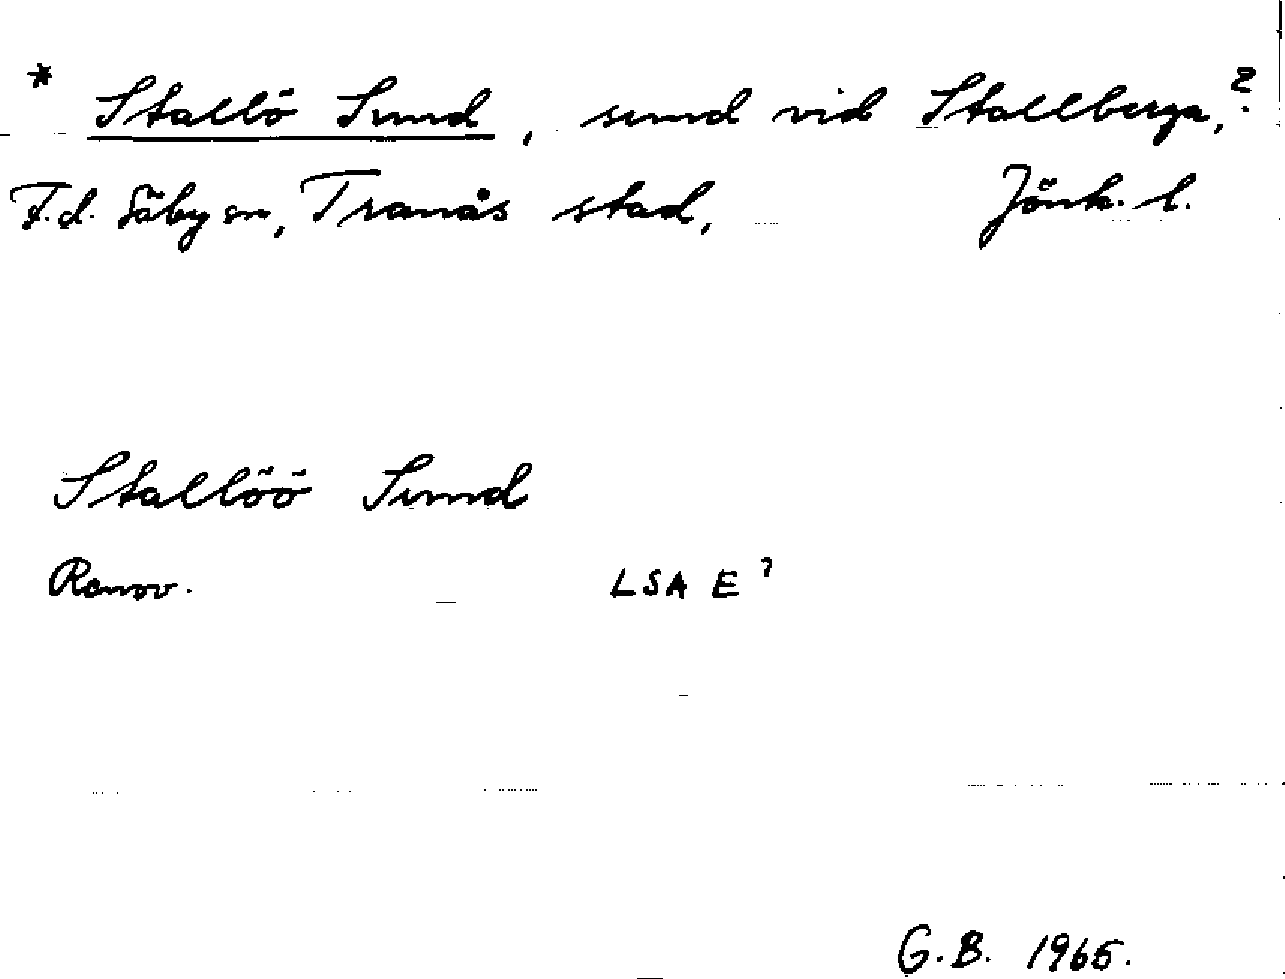 * Stallö Sund, sund vid Stallberga,?
F.d. Säby sn, Tranås stad, Jönk. l.
Stallöö Sund
Renov. LSA E ?
G.B. 1965.